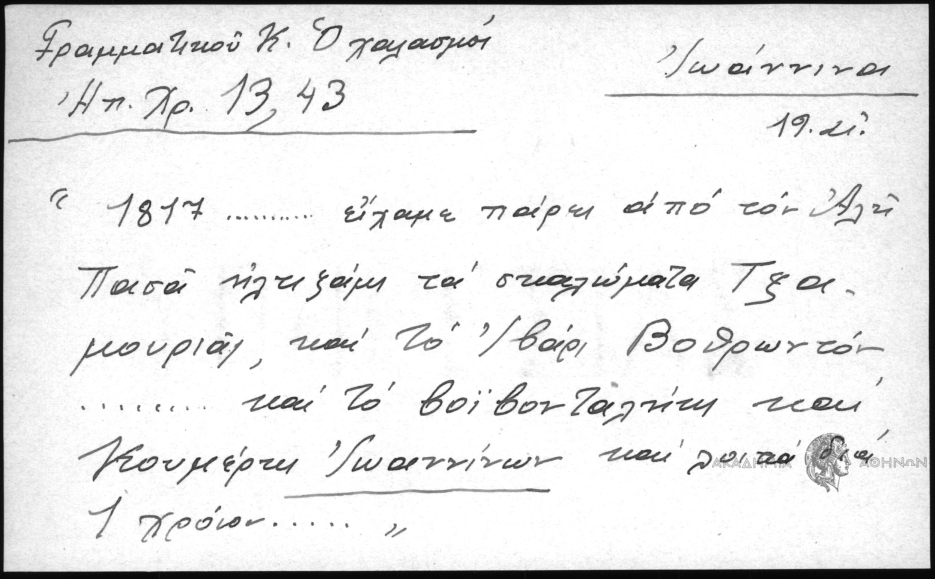 Γραμματικοῦ Κ. Ὁ χαλασμός
Ἠπ. Χρ. 13, 43
Ἰωάννινα
19. αἰ.
“ 1817 .......... εἴχαμε πάρει ἀπό τόν Ἀλῆ
Πασᾶ ἠλτιζάμι τά σκαλώματα Τζα-
μουριᾶς, καί τό Ἰβάρι Βοθρωντόν
......... καί τό βοϊβονταλήκι καί
Κουμέρκι Ἰωαννίνων καί λοιπά διά
1 χρόνον ..... „
ΑΚΑΔΗΜΙΑ ΑΘΗΝΩΝ